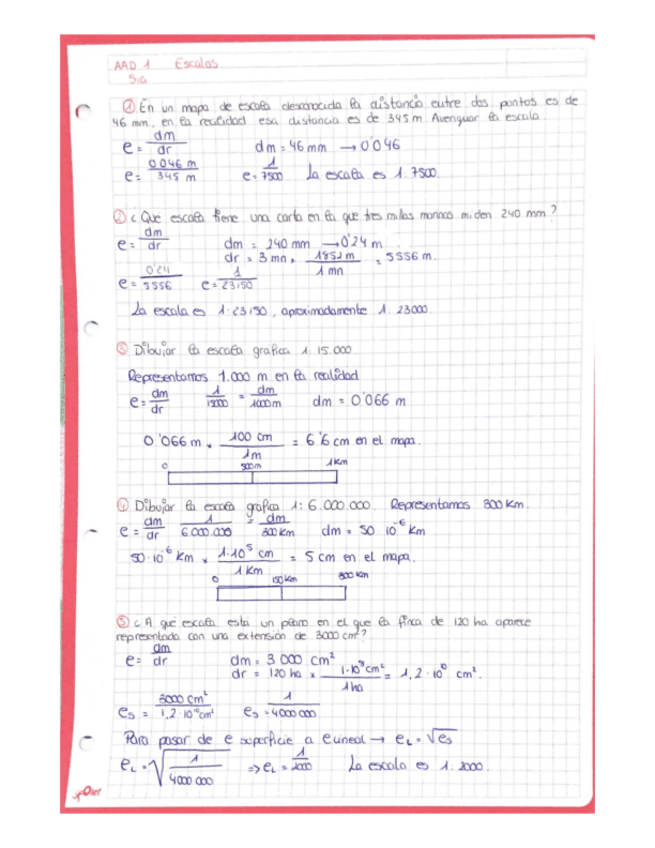 AAD 1 Escalas
SIG
① En un mapa de escala desconocida la distancia entre dos puntos es de
46 mm, en la realidad esa distancia es de 345 m. Averiguar la escala.
e = dm/dr dm = 46 mm → 0'046
e = 0'046 m/345 m e = 1/7500 La escala es 1:7500.
② ¿Qué escala tiene una carta en la que tres millas marinas miden 240 mm?
e = dm/dr dm = 240 mm → 0'24 m
dr = 3 mn × 1852 m/1 mn = 5556 m.
e = 0'24/5556 e = 1/23150
La escala es 1:23150, aproximadamente 1:23000.
③ Dibujar la escala gráfica 1:15.000
Representamos 1.000 m en la realidad
e = dm/dr 1/15000 = dm/1000m dm = 0'066 m
0'066 m × 100 cm/1m = 6'6 cm en el mapa.
0 500m 1Km
④ Dibujar la escala gráfica 1:6.000.000. Representamos 300 Km.
e = dm/dr 1/6.000.000 = dm/300Km dm = 50·10⁻⁶ Km
50·10⁻⁶ Km × 1·10⁵ cm/1 Km = 5 cm en el mapa.
0 150Km 300 Km
⑤ ¿A qué escala está un plano en el que la finca de 120 ha aparece
representada con una extensión de 3000 cm²?
e = dm/dr dm = 3 000 cm²
dr = 120 ha × 1·10⁸ cm²/1 ha = 1,2·10¹⁰ cm².
eₛ = 3000 cm²/1,2·10¹⁰ cm² eₛ = 1/4000 000
Para pasar de e superficie a e lineal → e_L = √eₛ
e_L = √(1/4000 000) ⇒ e_L = 1/2000 La escala es 1:2000.